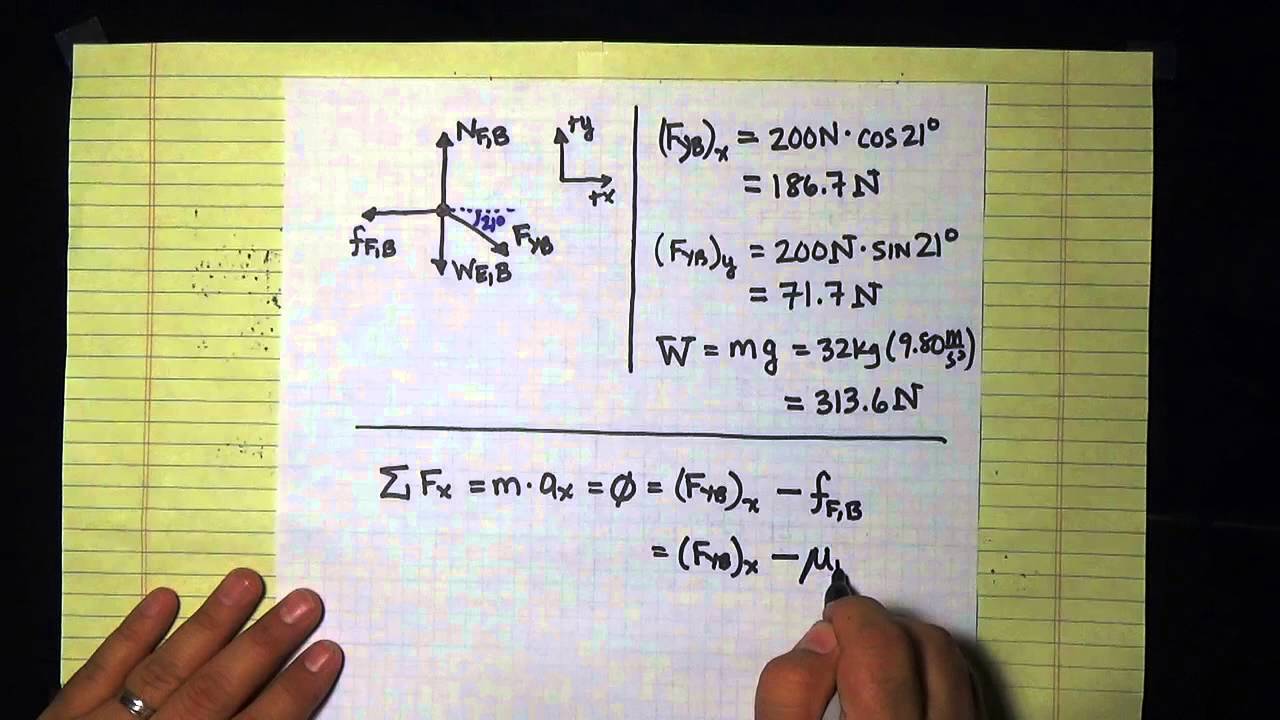 N_F,B
+y
+x
21°
f_F,B
F_YB
W_E,B
(F_YB)_x = 200N · cos21°
= 186.7N
(F_YB)_y = 200N · SIN21°
= 71.7N
W = mg = 32kg(9.80 m/s²)
= 313.6N
Σ F_x = m · a_x = ϕ = (F_YB)_x − f_F,B
= (F_YB)_x − μ